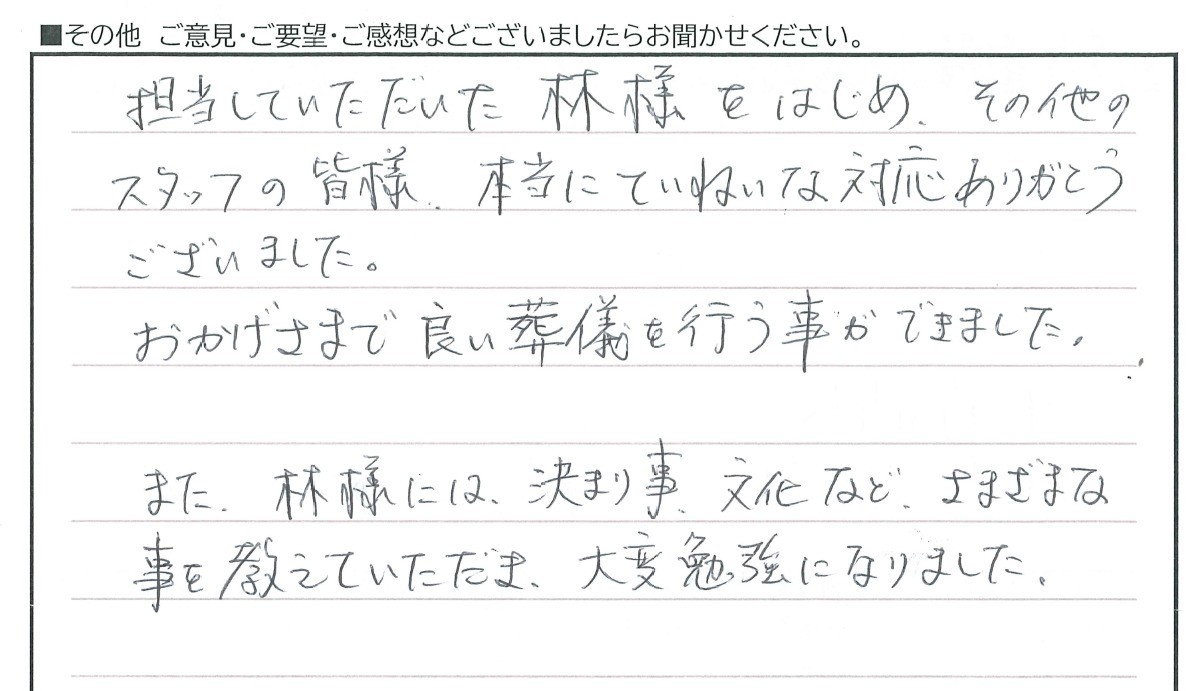 ■その他 ご意見・ご要望・ご感想などございましたらお聞かせください。
担当していただいた 林様をはじめ、その他の
スタッフの皆様、本当にていねいな対応ありがとう
ございました。
おかげさまで良い葬儀を行う事ができました。
また、林様には、決まり事、文化など、さまざまな
事を教えていただき、大変勉強になりました。